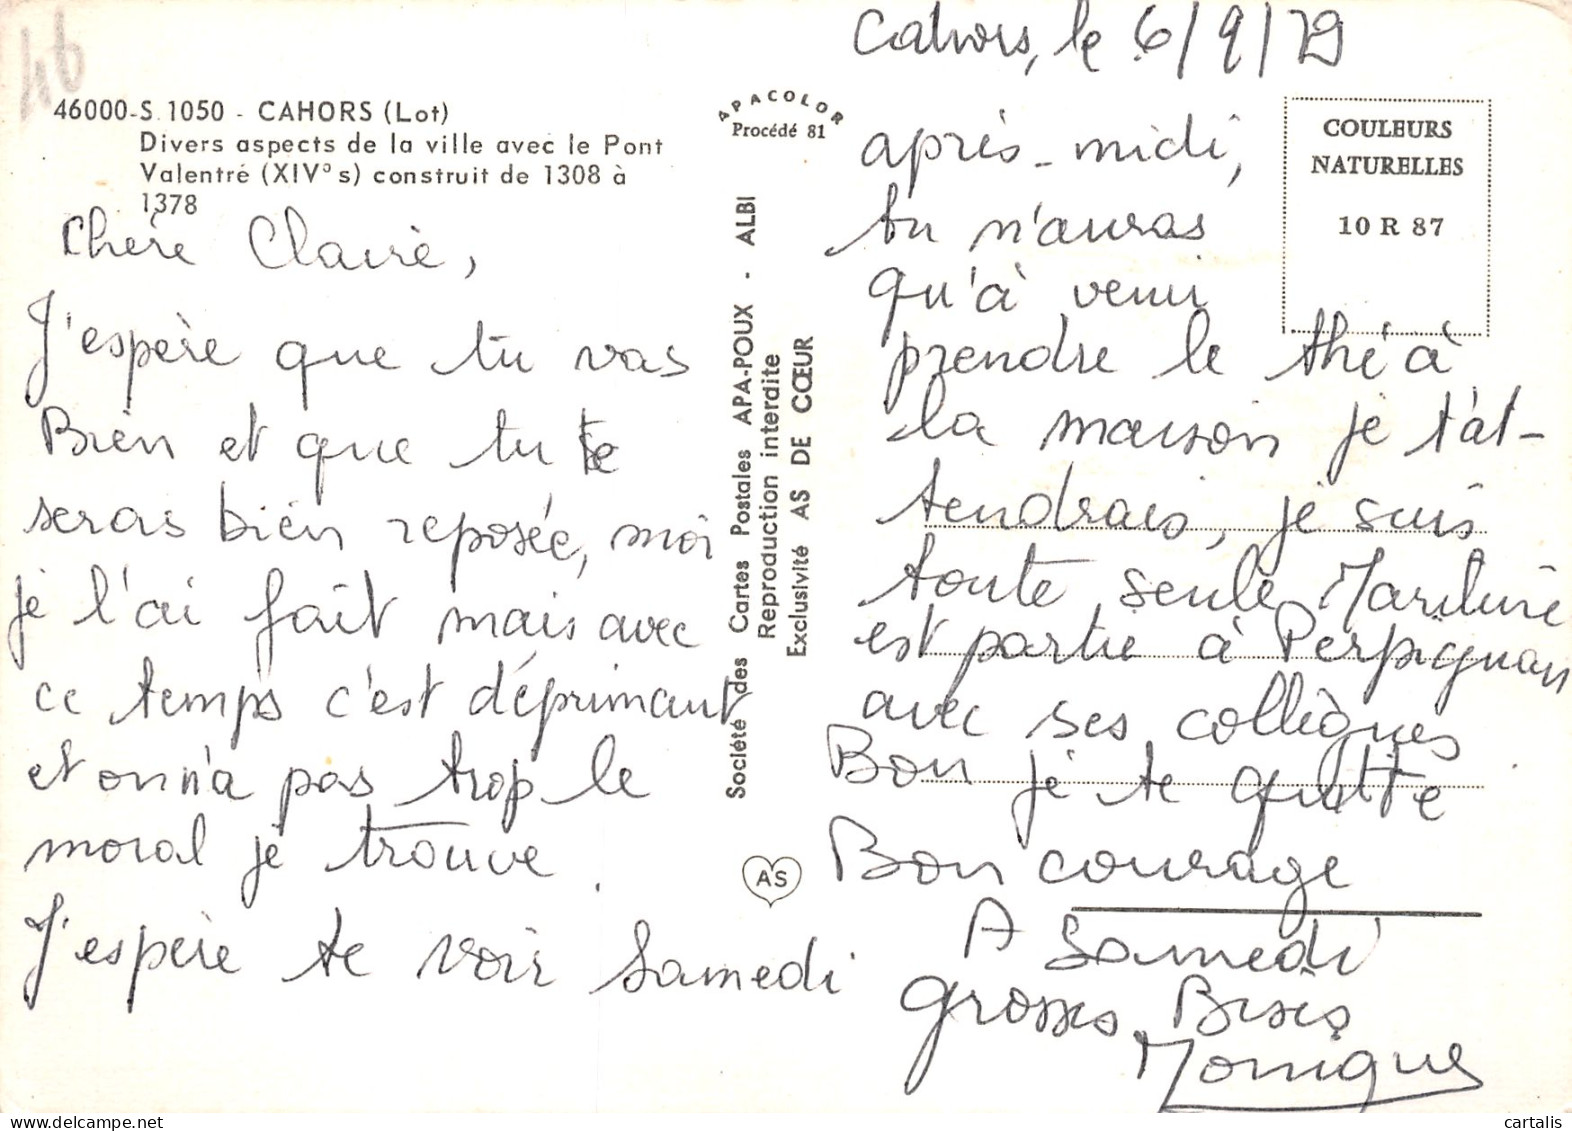 46
46000-S 1050 - CAHORS (Lot)
Divers aspects de la ville avec le Pont
Valentré (XIV° s) construit de 1308 à
1378
Chère Claire,
J'espère que tu vas
Bien et que tu te
seras bien reposée, moi
je l'ai fait mais avec
ce temps c'est déprimant
et on n'a pas trop le
moral je trouve.
J'espère te voir Samedi
APACOLOR
Procédé 81
Société des Cartes Postales APA-POUX - ALBI
Reproduction interdite
Exclusivité AS DE CŒUR
AS
Cahors, le 6/9/79
COULEURS
NATURELLES
10 R 87
après-midi,
tu n'auras
qu'à venir
prendre le thé à
la maison je t'at-
tendrais, je suis
toute seule Martine
est partie à Perpignan
avec ses collègues
Bon je te quitte
Bon courage
A Samedi
grosses Bises
Monique
cartalis